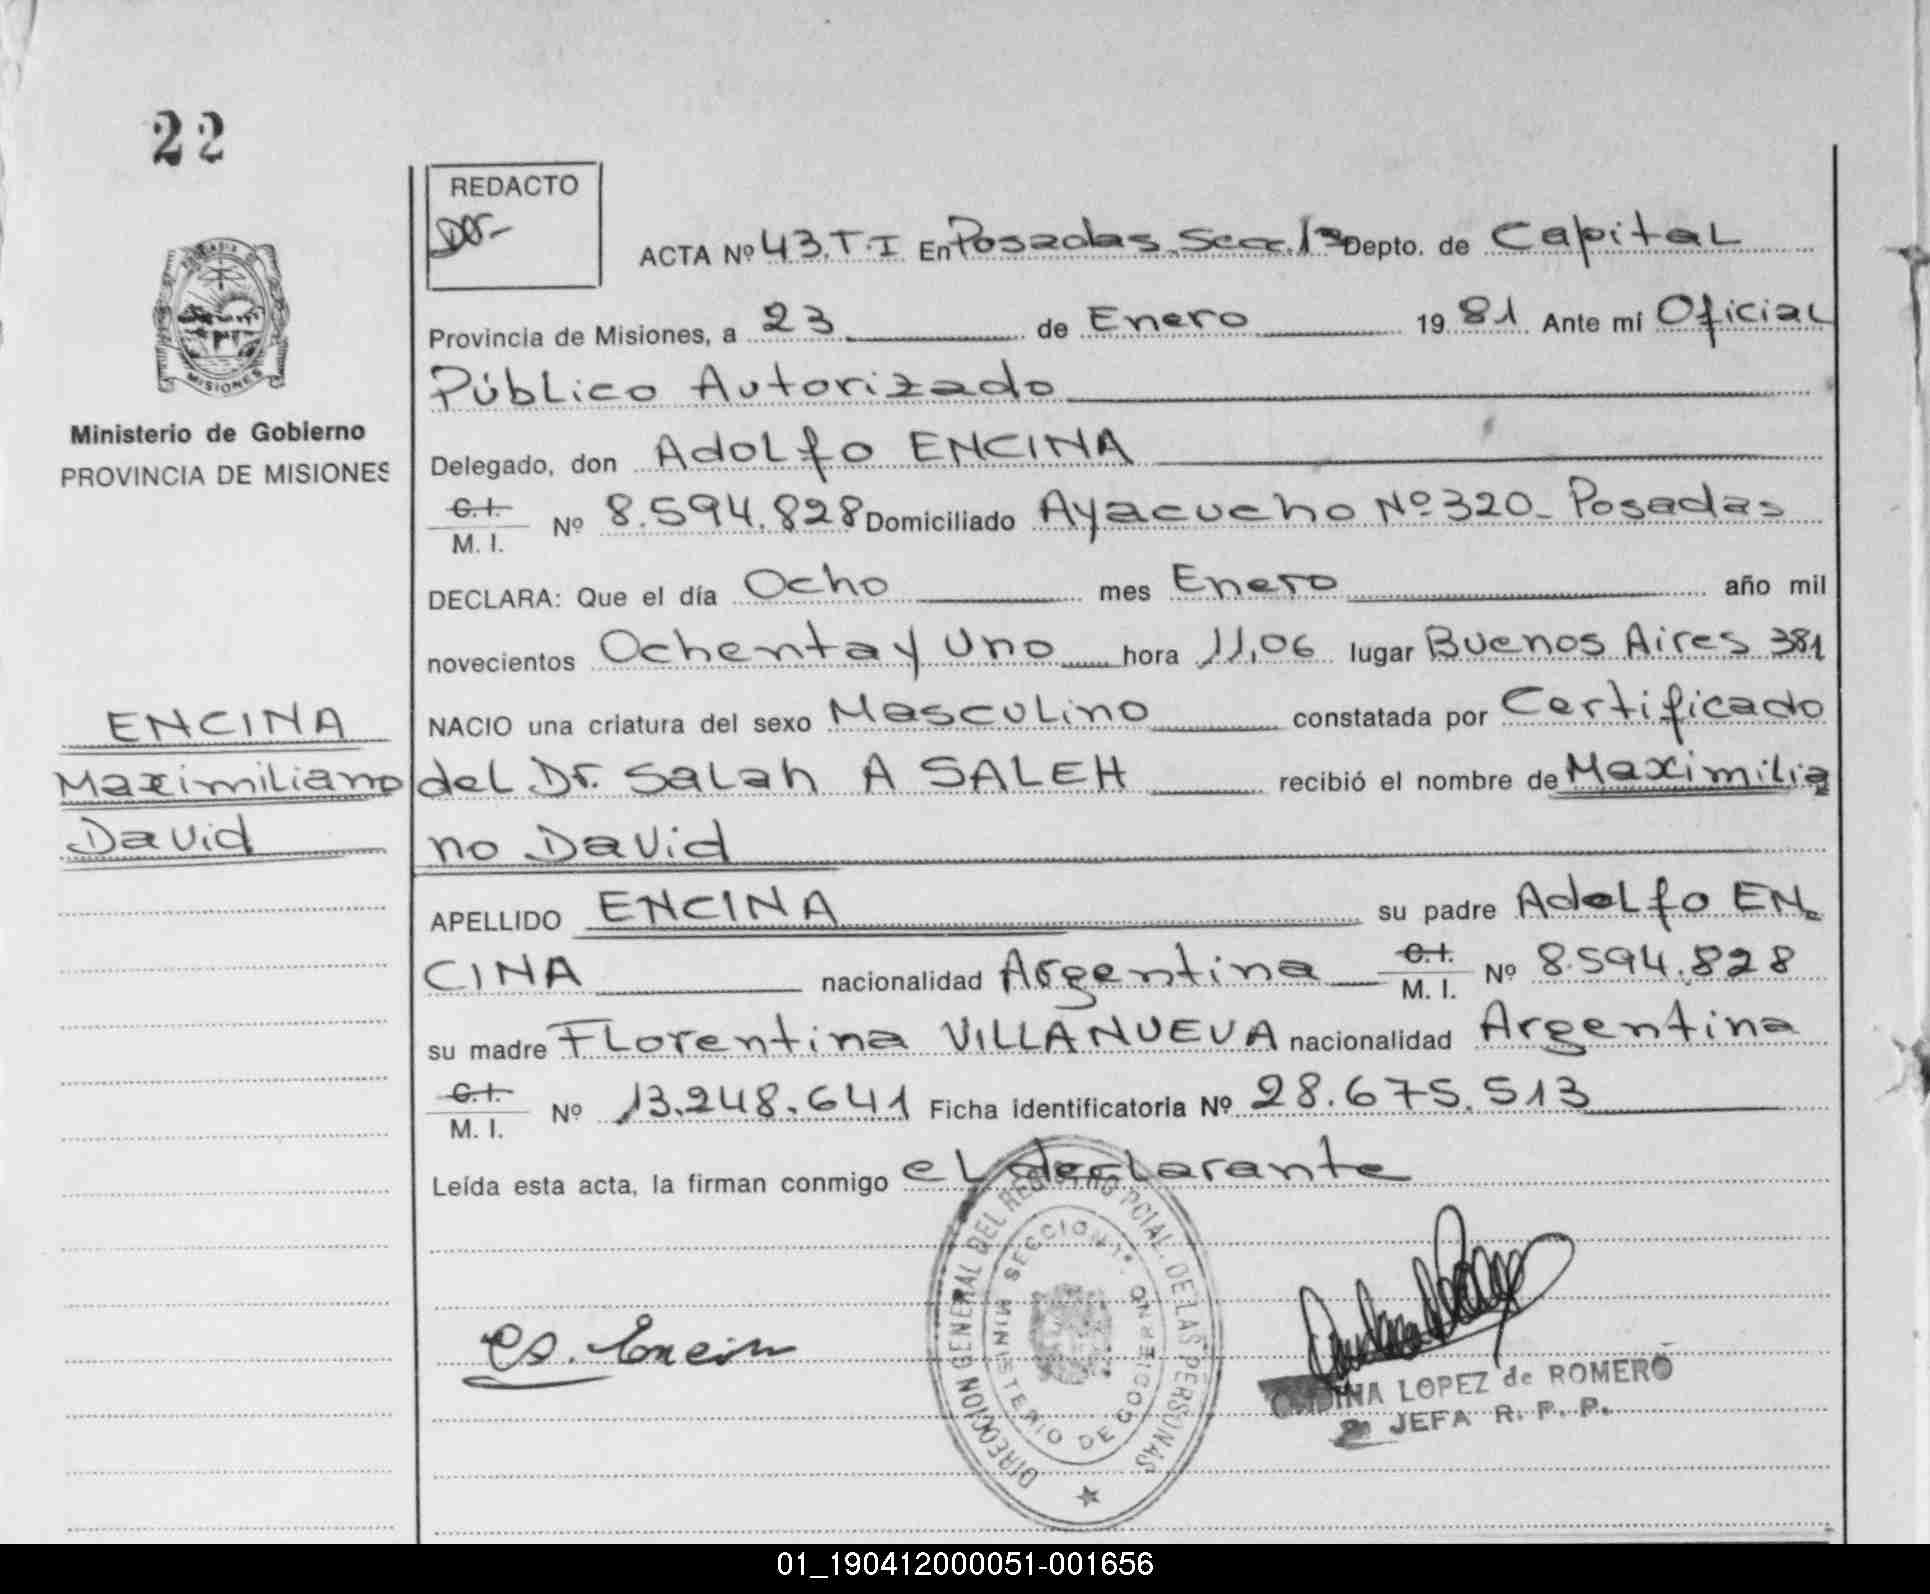 22
REDACTO
ACTA Nº 43.T.I En Posadas Secc. 1ª Depto. de Capital
MISIONES
Provincia de Misiones, a 23 de Enero 19 81 Ante mí Oficial
Público Autorizado
Ministerio de Gobierno
PROVINCIA DE MISIONES
Delegado, don Adolfo ENCINA
C.I.
M. I. Nº 8.594.828 Domiciliado Ayacucho Nº 320_ Posadas
DECLARA: Que el día Ocho mes Enero año mil
novecientos Ochenta y Uno hora 11,06 lugar Buenos Aires 381
ENCINA
Maximiliano
David
NACIO una criatura del sexo Masculino constatada por Certificado
del Dr. Salah A SALEH recibió el nombre de Maximilia
no David
APELLIDO ENCINA su padre Adolfo EN_
CINA nacionalidad Argentina C.I.
M. I. Nº 8.594.828
su madre Florentina VILLANUEVA nacionalidad Argentina
C.I.
M. I. Nº 13.248.641 Ficha identificatoria Nº 28.675.513
Leída esta acta, la firman conmigo el declarante
DIRECCION GENERAL DEL REGISTRO PCIAL. DE LAS PERSONAS
SECCION 1ª.
MINISTERIO DE GOBIERNO
LOPEZ de ROMERO
JEFA R. P. P.
01_190412000051-001656